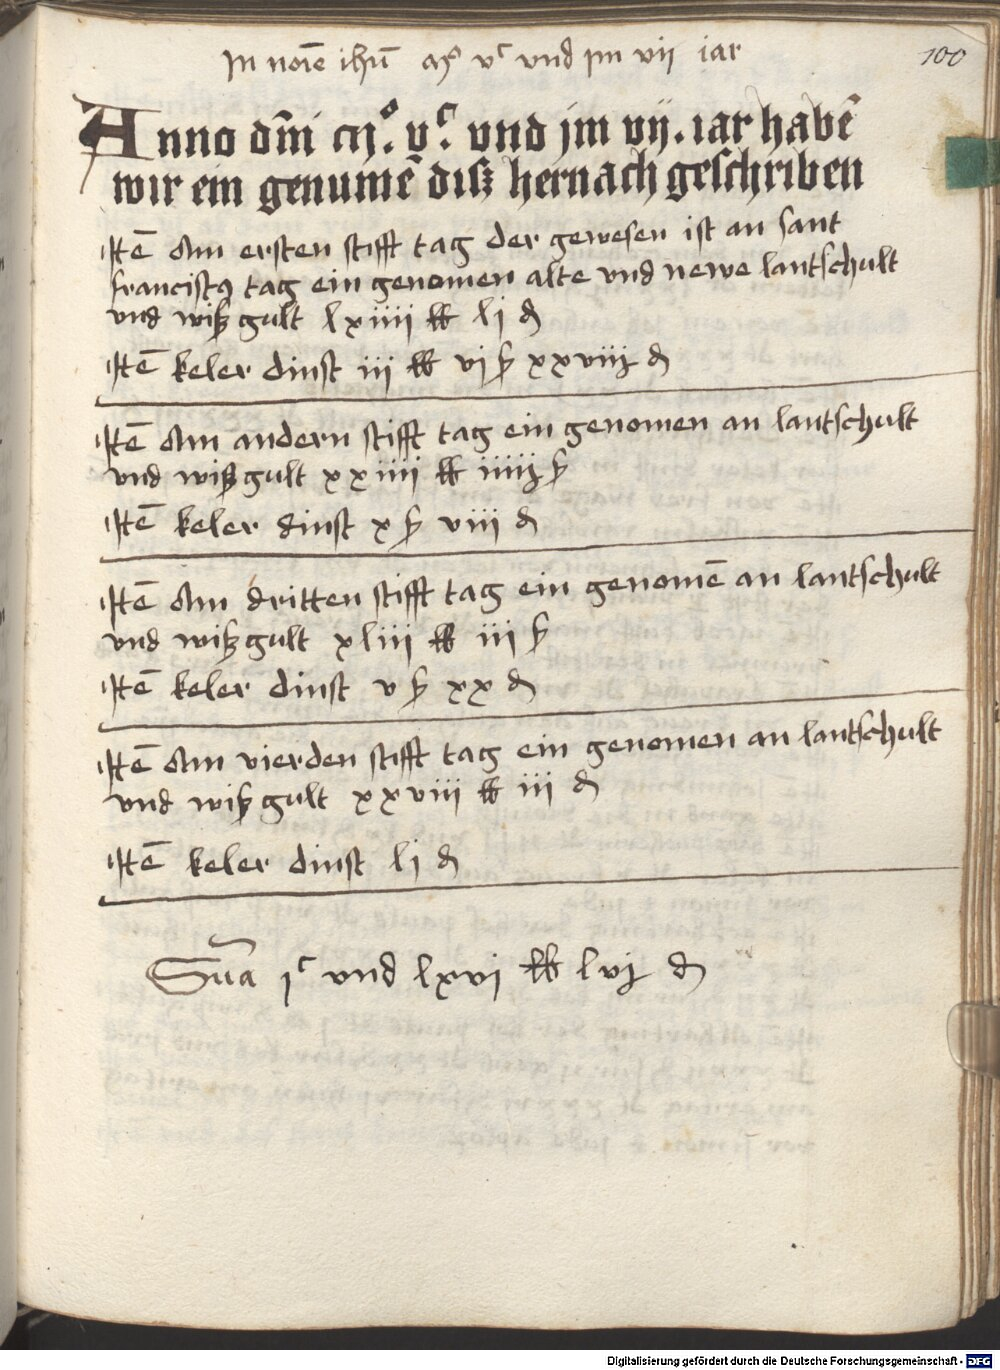 In noīe ihū aȷ° vᶜ vnd im vij iar
100
Anno dm̄i m°. vᶜ. vnd jm vij. iar habē
wir ein genumē disz hernach geschriben
Itē Am ersten stifft tag der gewesen ist an sant
franciscꝯ tag ein genomen alte vnd newe lantschult
vnd wiszgult lxiiii ℔ li ₰
Itē keler dinst iii ℔ vi ß xxviij ₰
Itē Am andern stifft tag ein genomen an lantschult
vnd wiszgult xxiiii ℔ iiiij ß
Itē keler dinst x ß viii ₰
Itē Am dritten stifft tag ein genomē an lantschult
vnd wiszgult xliii ℔ iii ß
Itē keler dinst v ß xx ₰
Itē Am vierden stifft tag ein genomen an lantschult
vnd wiszgult xxviii ℔ iii ₰
Itē keler dinst li ₰
Sūa jᶜ vnd lxvi ℔ lvj ₰
Digitalisierung gefördert durch die Deutsche Forschungsgemeinschaft - DFG